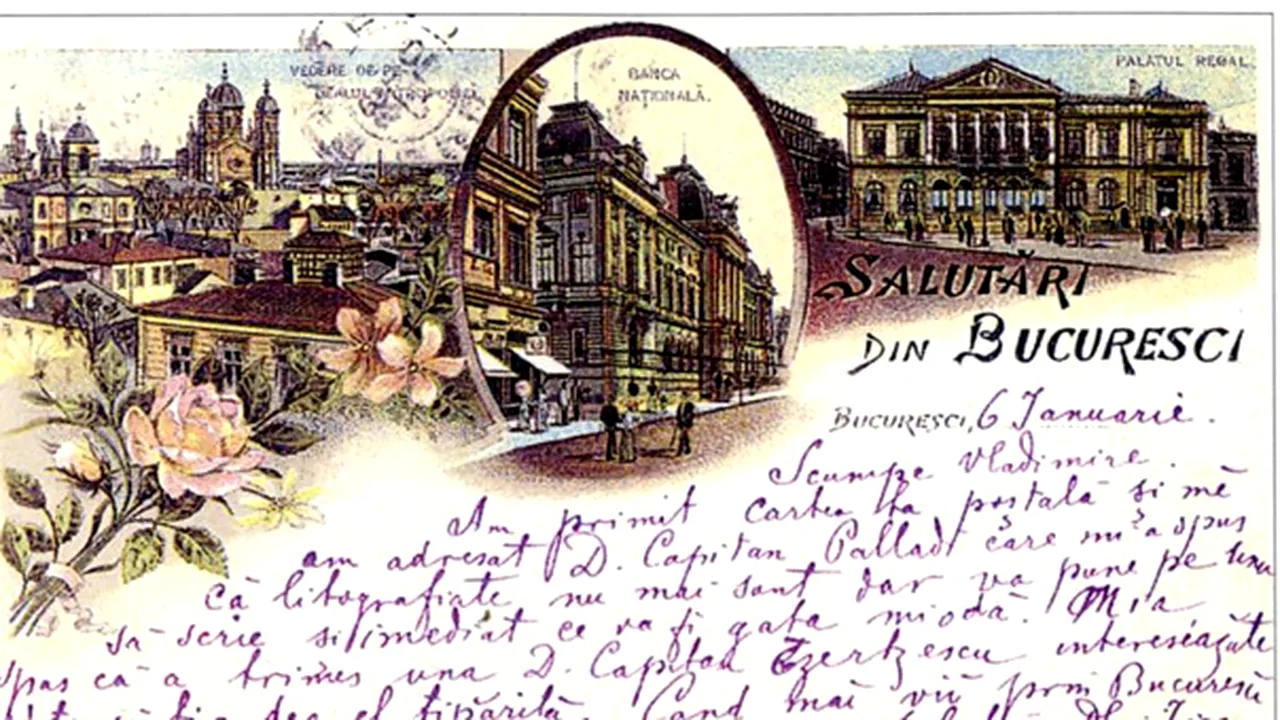 VEDERE DE PE
DEALUL MITROPOLIEI
BANCA
NAȚIONALĂ.
PALATUL REGAL
SALUTĂRI
DIN BUCURESCI
BUCURESCI, 6 Ianuarie.
Scumpe Vladimire.
Am primit cartea ta postală si mĕ
am adresat D. Capitan Palladi care mi a spus
că litografiate nu mai sont dar va pune pe unu
să scrie si imediat ce va fi gata mi o dă. Mi a
spus că a trimes una D. Capitan interesiazăte
fi tipărită. Cand mai vii prin Bucuresci